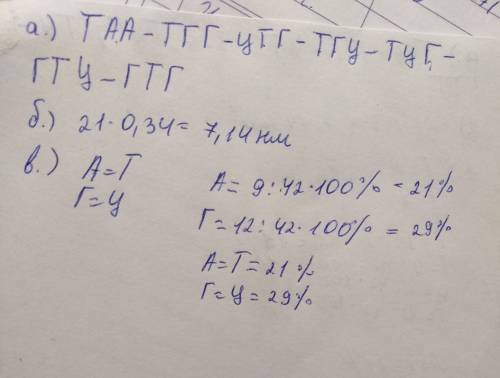 а.) ТАА - ТГГ - ЦТГ - ТГЦ - ТЦГ -
ГТЦ - ГТГ
б.) 21 · 0,34 = 7,14 нм
в.) А=Т
Г=Ц
А = 9 : 42 · 100% = 21%
Г = 12 : 42 · 100% = 29%
А=Т=21%
Г=Ц=29%